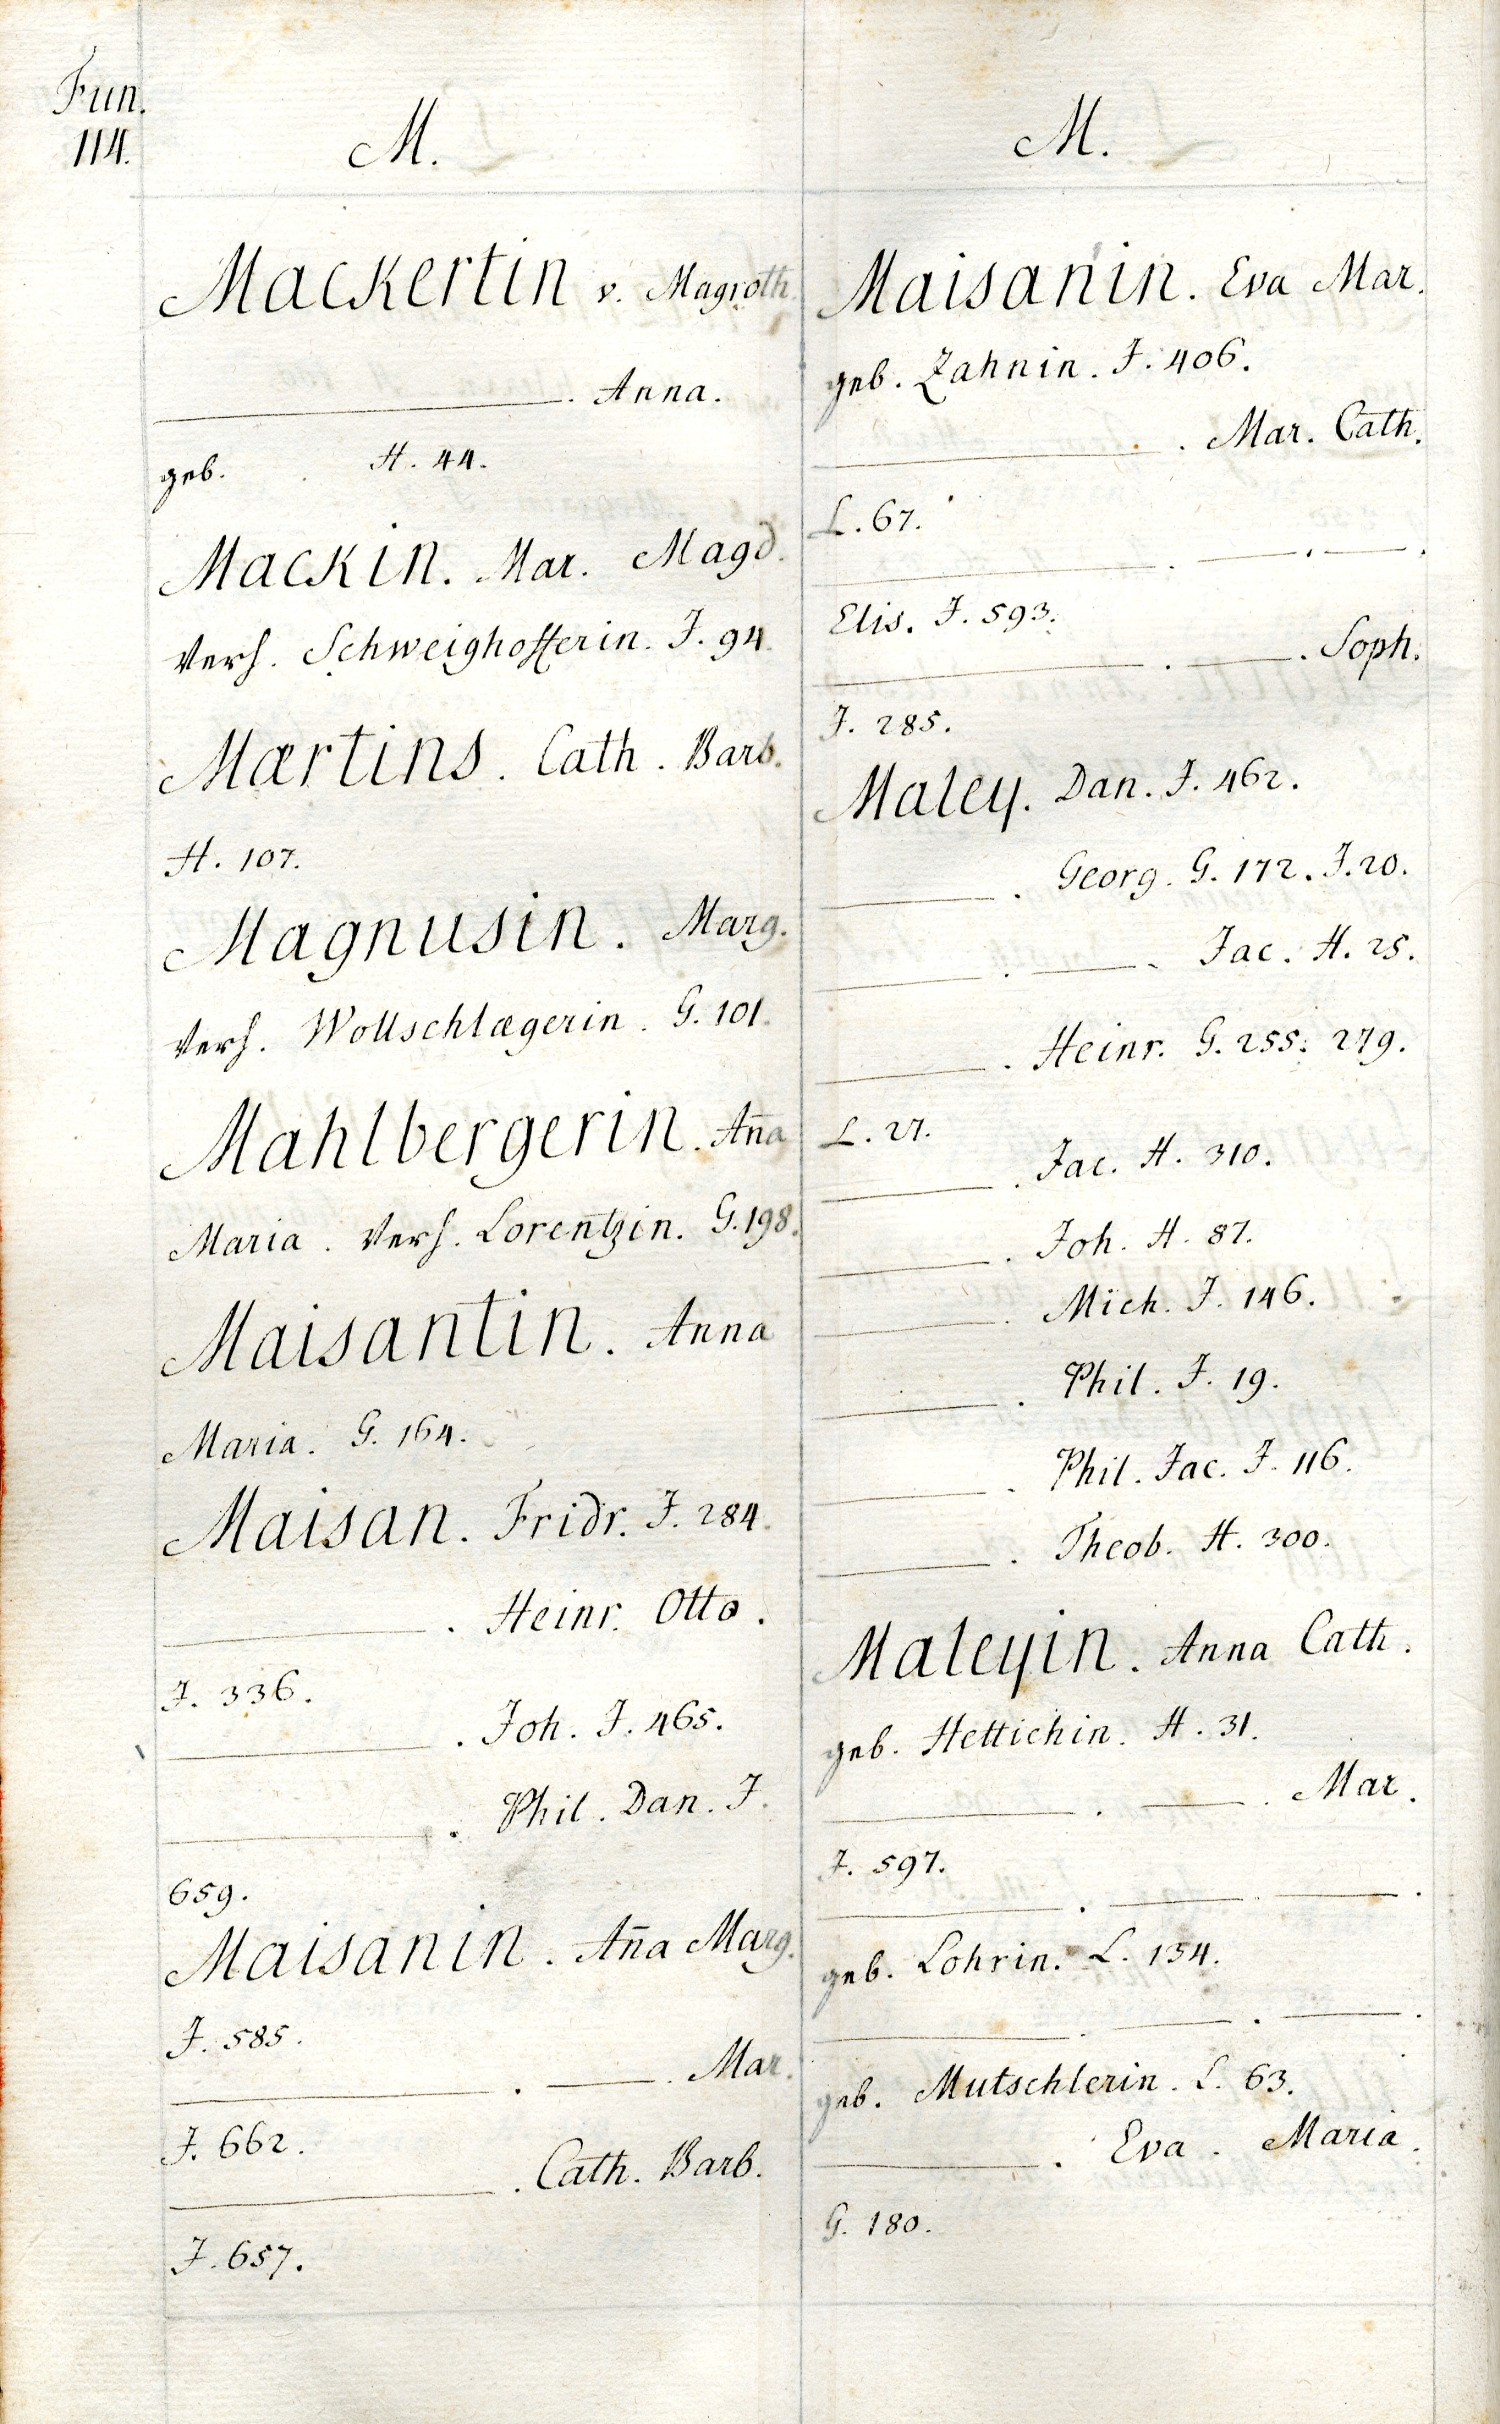 Fun.
114.
M.
Mackertin v. Magroth
———. Anna.
geb. . H. 44.
Mackin. Mar. Magd.
Verh. Schweighofferin. J. 94.
Mærtins. Cath. Barb.
H. 107.
Magnusin. Marg.
Verh. Wollschlægerin. G. 101.
Mahlbergerin. Aña
Maria. Verh. Lorentzin. G. 198.
Maisantin. Anna
Maria. G. 164.
Maisan. Fridr. J. 284.
———. Heinr. Otto.
J. 336.
———. Joh. J. 465.
———. Phil. Dan. J.
659.
Maisanin. Aña Marg.
J. 585.
———. ———. Mar.
J. 662.
———. Cath. Barb.
J. 657.
M.
Maisanin. Eva Mar.
geb. Zahnin. J. 406.
———. Mar. Cath.
L. 67.
———. ———. ———.
Elis. J. 593.
———. ———. Soph.
J. 285.
Maley. Dan. J. 462.
———. Georg. G. 172. J. 20.
———. ———. Jac. H. 25.
———. Heinr. G. 255. 279.
L. 27.
———. Jac. H. 310.
———. Joh. H. 87.
———. Mich. J. 146.
———. Phil. J. 19.
———. Phil. Jac. J. 116.
———. Theob. H. 300.
Maleyin. Anna Cath.
geb. Hettichin. H. 31.
———. ———. Mar.
J. 597.
———. ———. ———.
geb. Lohrin. L. 134.
———. ———. ———.
geb. Mutschlerin. L. 63.
———. Eva. Maria.
G. 180.